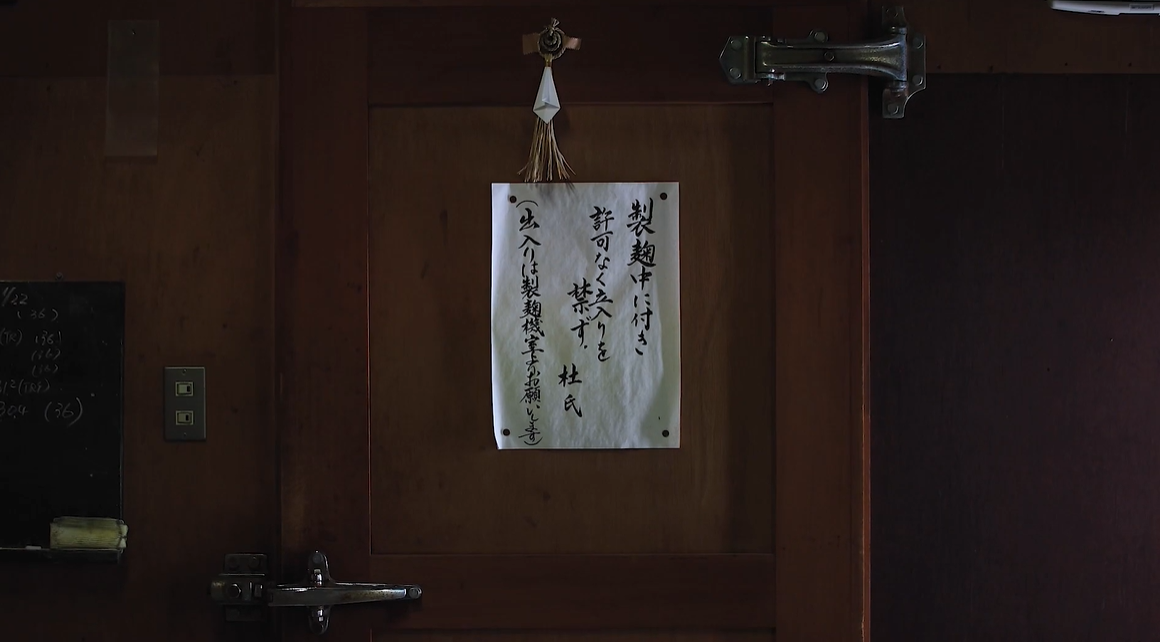 製麹中に付き
許可なく立入りを
禁ず.
杜氏
(出入りは製麹機室よりお願いします)
1/22
(36)
(36)